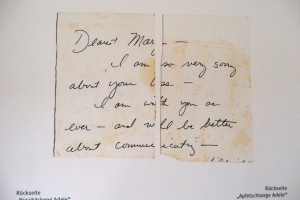 Dearest Mary —
I am so very sorry
about your loss —
I am with you as
ever — and will be better
about communicating —
Rückseite
Rückseite
„Apfelschlange Adele“